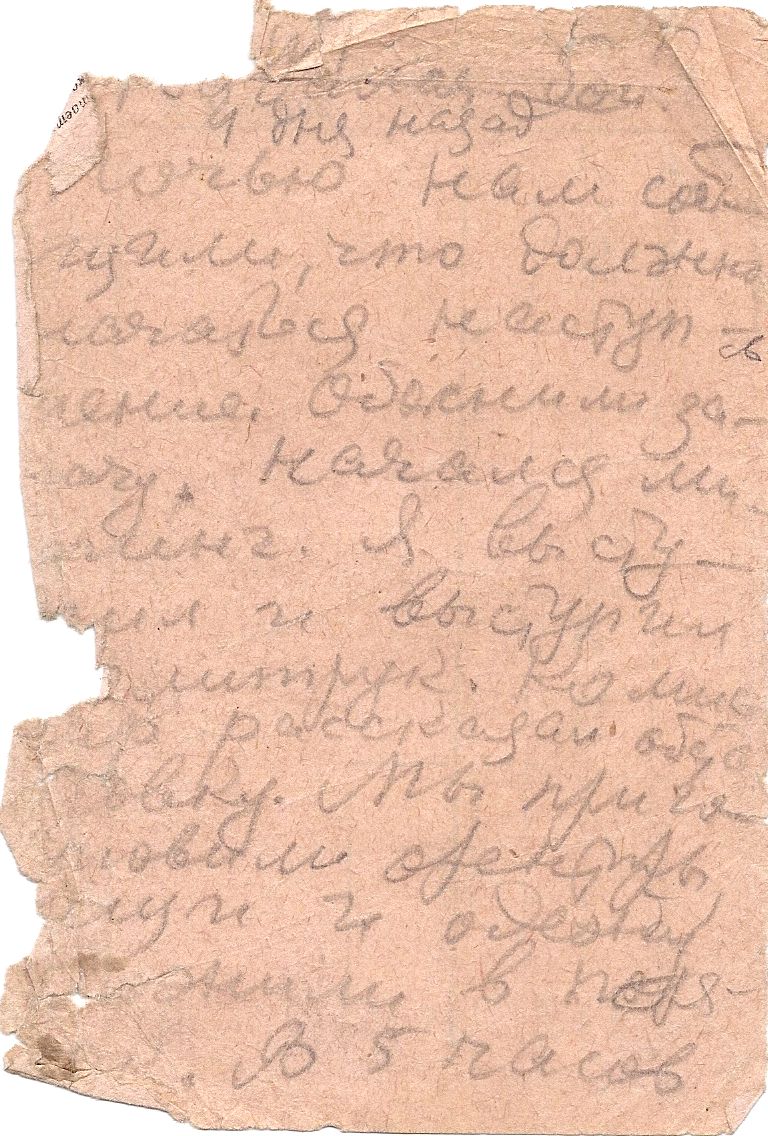 бой.
4 дня назад
Ночью нам сооб
щили, что должно
начаться наступ
ление. Объяснили за-
дачу. Начался ми-
тинг. Я высту-
пил и выступил
политрук. Комис
сар рассказал обста
новку. Мы приго
товили
и одежду
в поря-
В 5 часов